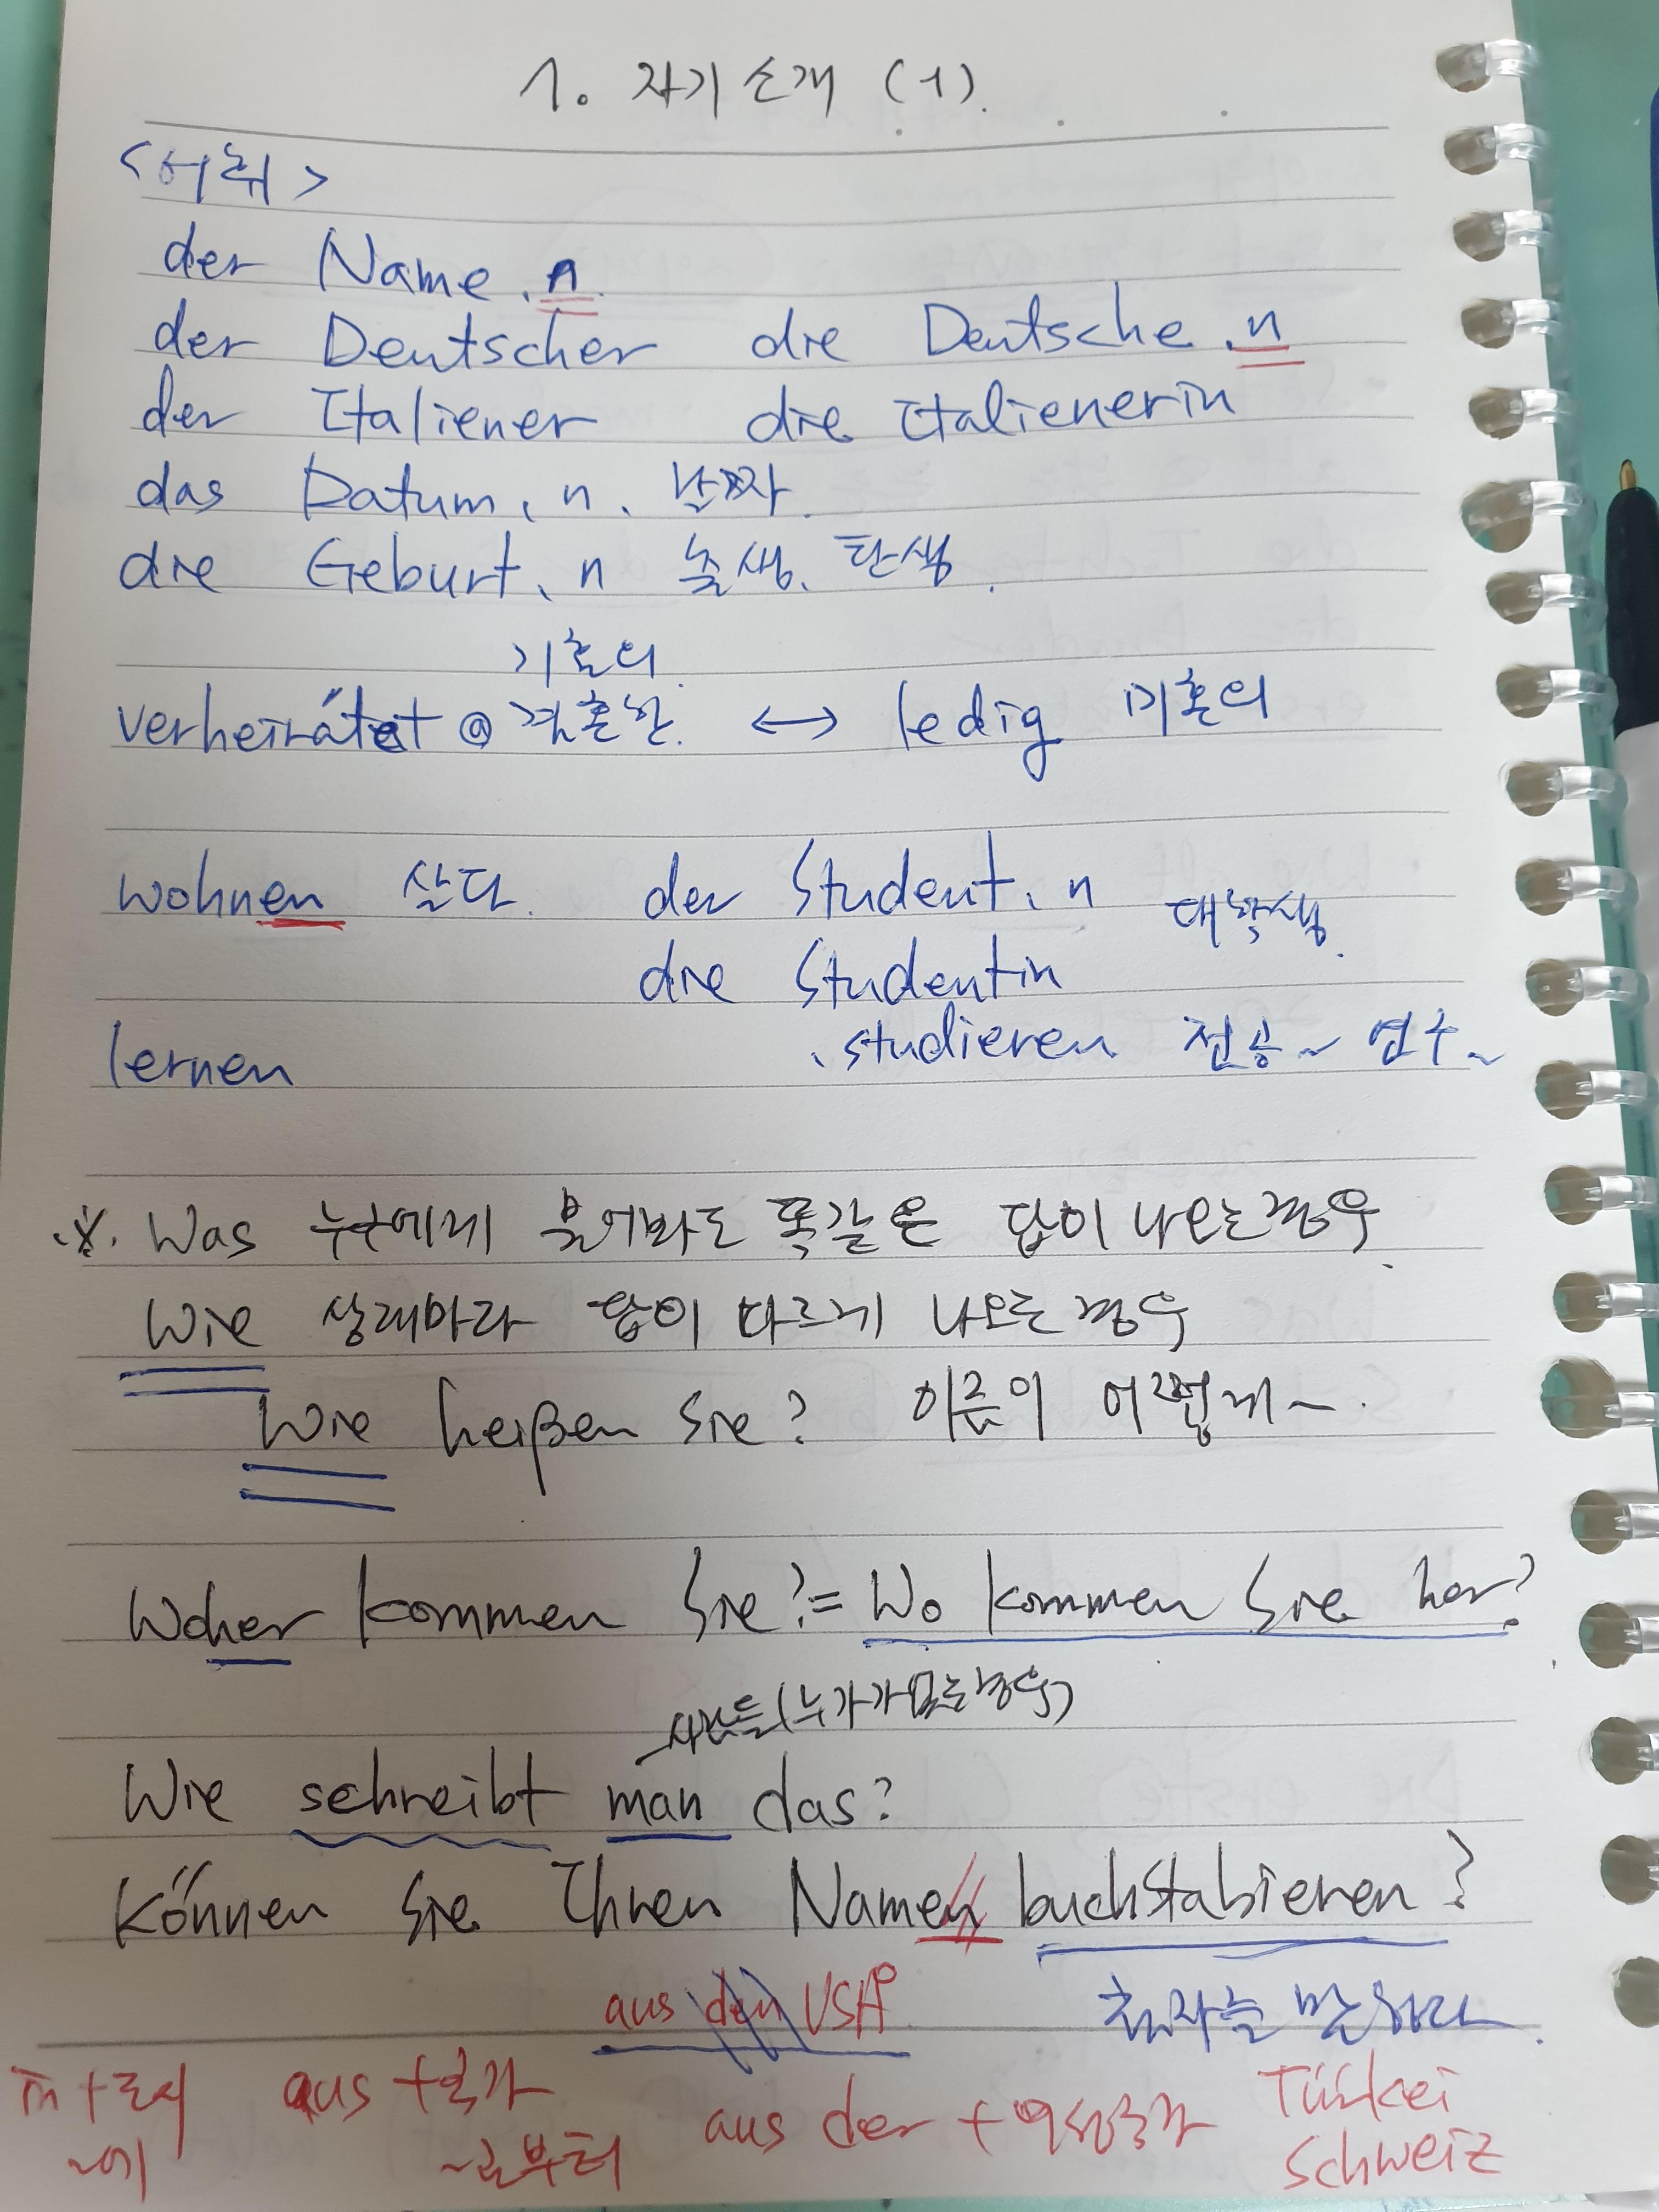 1. 자기소개 (1).
<어휘>
der Name, n.
der Deutscher die Deutsche, n
der Italiener die Italienerin
das Datum, n, 날짜.
die Geburt, n 출생, 탄생.
기혼의
verheiratet ⓐ 결혼한. ↔ ledig 미혼의
wohnen 살다. der Student, n 대학생.
die Studentin
lernen , studieren 전공~ 연수~
※. Was 누구에게 물어봐도 똑같은 답이 나오는 경우.
Wie 상대마다 답이 다르게 나오는 경우
Wie heißen Sie? 이름이 어떻게~.
Woher kommen Sie? = Wo kommen Sie her?
사람들(누가가 없는경우)
Wie schreibt man das?
Können Sie Ihren Namen buchstabieren?
aus den USA 철자를 말하다.
in + 도시 aus + 국가 aus der + 여성국가 Türkei
~에 ~로부터 Schweiz